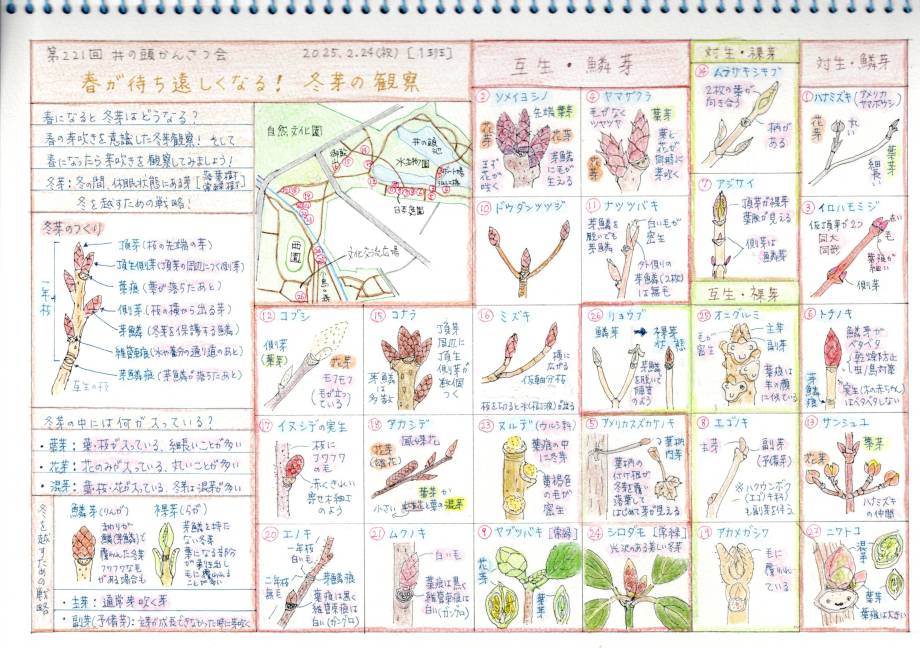 第221回 井の頭かんさつ会
2025.2.24(祝) [1班]
春が待ち遠しくなる! 冬芽の観察
春になると冬芽はどうなる?
春の芽吹きを意識した冬芽観察! そして
春になったら芽吹きを観察してみましょう!
冬芽:冬の間、休眠状態にある芽[落葉樹 常緑樹]
冬を越すための戦略!
冬芽のつくり
頂芽(枝の先端の芽)
頂生側芽(頂芽の周辺につく側芽)
葉痕(葉が落ちたあと)
側芽(枝の横から出る芽)
芽鱗(冬芽を保護する鱗)
維管束痕(水や養分の通り道のあと)
芽鱗痕(芽鱗が落ちたあと)
一年枝
互生の枝
冬芽の中には何が入っている?
・葉芽:葉・枝が入っている、細長いことが多い
・花芽:花のみが入っている、丸いことが多い
・混芽:葉・枝・花が入っている、冬芽は混芽が多い
冬を越すための戦略
鱗芽(りんが)
まわりが
鱗(芽鱗)で
覆われた冬芽
フワフワな毛
がある場合も
裸芽(らが)
芽鱗を持た
ない冬芽
葉になる部分
がむき出し
毛に覆われる
ことが多い
・主芽:通常芽吹く芽
・副芽(予備芽):主芽が成長できなかった時に芽吹く
自然文化園
井の頭池
水生物園
御殿山
日本庭園
西園
文化交流広場
互生・鱗芽
② ソメイヨシノ
先端葉芽
花芽
花芽
芽鱗
に毛が
生える
まず
花が
咲く
④ ヤマザクラ
毛がなく
ツヤツヤ
葉芽
花芽
葉と
花が
同時に
芽吹く
⑩ ドウダンツツジ
⑪ ナツツバキ
芽鱗を
脱いでも
芽鱗
白い毛が
密生
外側の
芽鱗(2枚)
は無毛
⑫ コブシ
側芽
(葉芽)
花芽
モフモフ
(毛が立って
いる)
⑮ コナラ
頂芽
周辺に
頂生
側芽が
数個つく
芽鱗は
多数
⑯ ミズキ
横に
広がる
仮軸分枝
枝をちぎると水(樹液)が出る
㉖ リョウブ
鱗芽 → 裸芽
状態
芽鱗
を脱いで
裸芽の
ように
⑰ イヌシデの実生
枝に
フワフワ
の毛
赤くきれい
寄せ木細工
のよう
⑱ アカシデ
風媒花
花芽
(雄花)
葉芽か
混芽
小さい
㉓ ヌルデ(ウルシ科)
葉痕の中
に冬芽
黄褐色
の毛が
密生
⑤ アメリカスズカケノキ
葉柄
内芽
葉柄の
付け根が
冬芽を覆う
落葉して
はじめて芽が見える
⑳ エノキ
一年枝
白い毛
二年枝
無毛
芽鱗痕
葉痕は黒く
維管束痕は
白い(ガングロ)
㉑ ムクノキ
白い毛
葉痕は黒く
維管束痕は
白い(ガングロ)
⑨ ヤブツバキ [常緑]
花芽
葉芽
㉔ シロダモ [常緑]
光沢のある美しい冬芽
対生・裸芽
ムラサキシキブ
2枚の葉が
向き合う
柄がある
⑦ アジサイ
頂芽が裸芽
葉脈が見える
側芽は
鱗芽
互生・裸芽
㉕ オニグルミ
毛が
密生
主芽
副芽
葉痕は
羊の顔
に似ている
⑧ エゴノキ
主芽
副芽
(予備芽)
※ハクウンボク
(エゴノキ科)
も副芽を伴う
⑲ アカメガシワ
毛に
覆われ
ている
対生・鱗芽
① ハナミズキ(アメリカヤマボウシ)
花芽
丸い
葉芽
細長い
③ イロハモミジ
仮頂芽が2つ
同大
同形
毛
葉痕が
細い
側芽
⑥ トチノキ
鱗芽が
ベタベタ
(乾燥防止
虫/鳥対策)
芽鱗痕
実生(木の赤ちゃん)
はベタベタしない
⑬ サンシュユ
花芽
葉芽
ハナミズキ
の仲間
㉒ ニワトコ
混芽
葉芽
葉痕は大きい